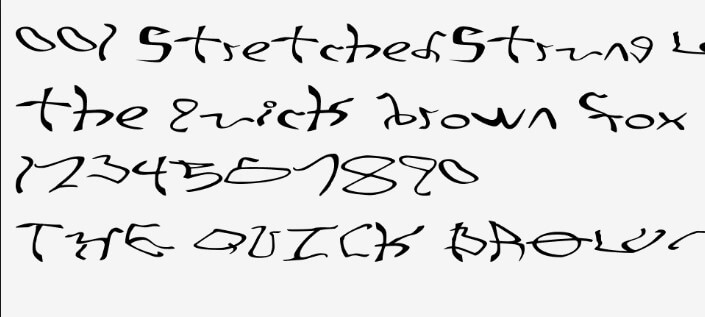 001 StretchedStrung
the quick brown fox
1234567890
THE QUICK BROW